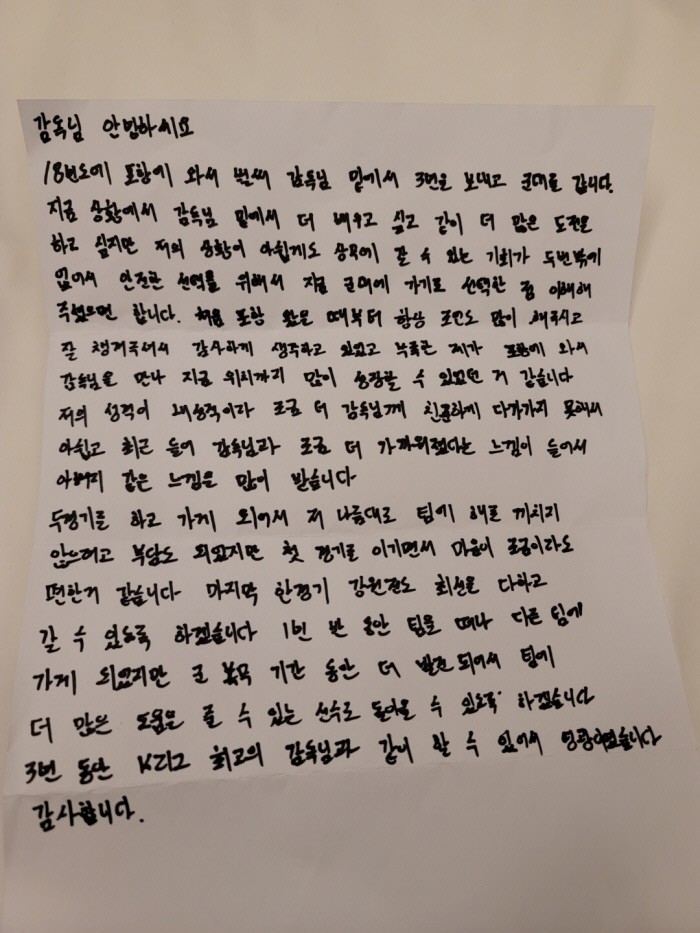 감독님 안녕하세요
18년도에 포항에 와서 벌써 감독님 밑에서 3년을 보내고 군대를 갑니다.
지금 상황에서 감독님 밑에서 더 배우고 싶고 같이 더 많은 도전을
하고 싶지만 저의 상황이 아쉽게도 상무에 갈 수 있는 기회가 두번밖에
없어서 안전한 선택을 위해서 지금 군대에 가기로 선택한 점 이해해
주셨으면 합니다. 처음 포항 왔을 때부터 항상 조언도 많이 해주시고
잘 챙겨주셔서 감사하게 생각하고 있었고 부족한 제가 포항에 와서
감독님을 만나 지금 위치까지 많이 성장할 수 있었던 거 같습니다
저의 성격이 내성적이라 조금 더 감독님께 친근하게 다가가지 못해서
아쉽고 최근 들어 감독님과 조금 더 가까워졌다는 느낌이 들어서
아버지 같은 느낌을 많이 받습니다
두경기를 하고 가게 되어서 저 나름대로 팀에 해를 끼치지
않으려고 부담도 되었지만 첫 경기를 이기면서 마음이 조금이라도
편한거 같습니다 마지막 한경기 강원전도 최선을 다하고
갈 수 있도록 하겠습니다 1년 반 동안 팀을 떠나 다른 팀에
가게 되었지만 군 복무 기간 동안 더 발전되어서 팀에
더 많은 도움을 줄 수 있는 선수로 돌아올 수 있도록 하겠습니다
3년 동안 K리그 최고의 감독님과 같이 할 수 있어서 영광이였습니다
감사합니다.